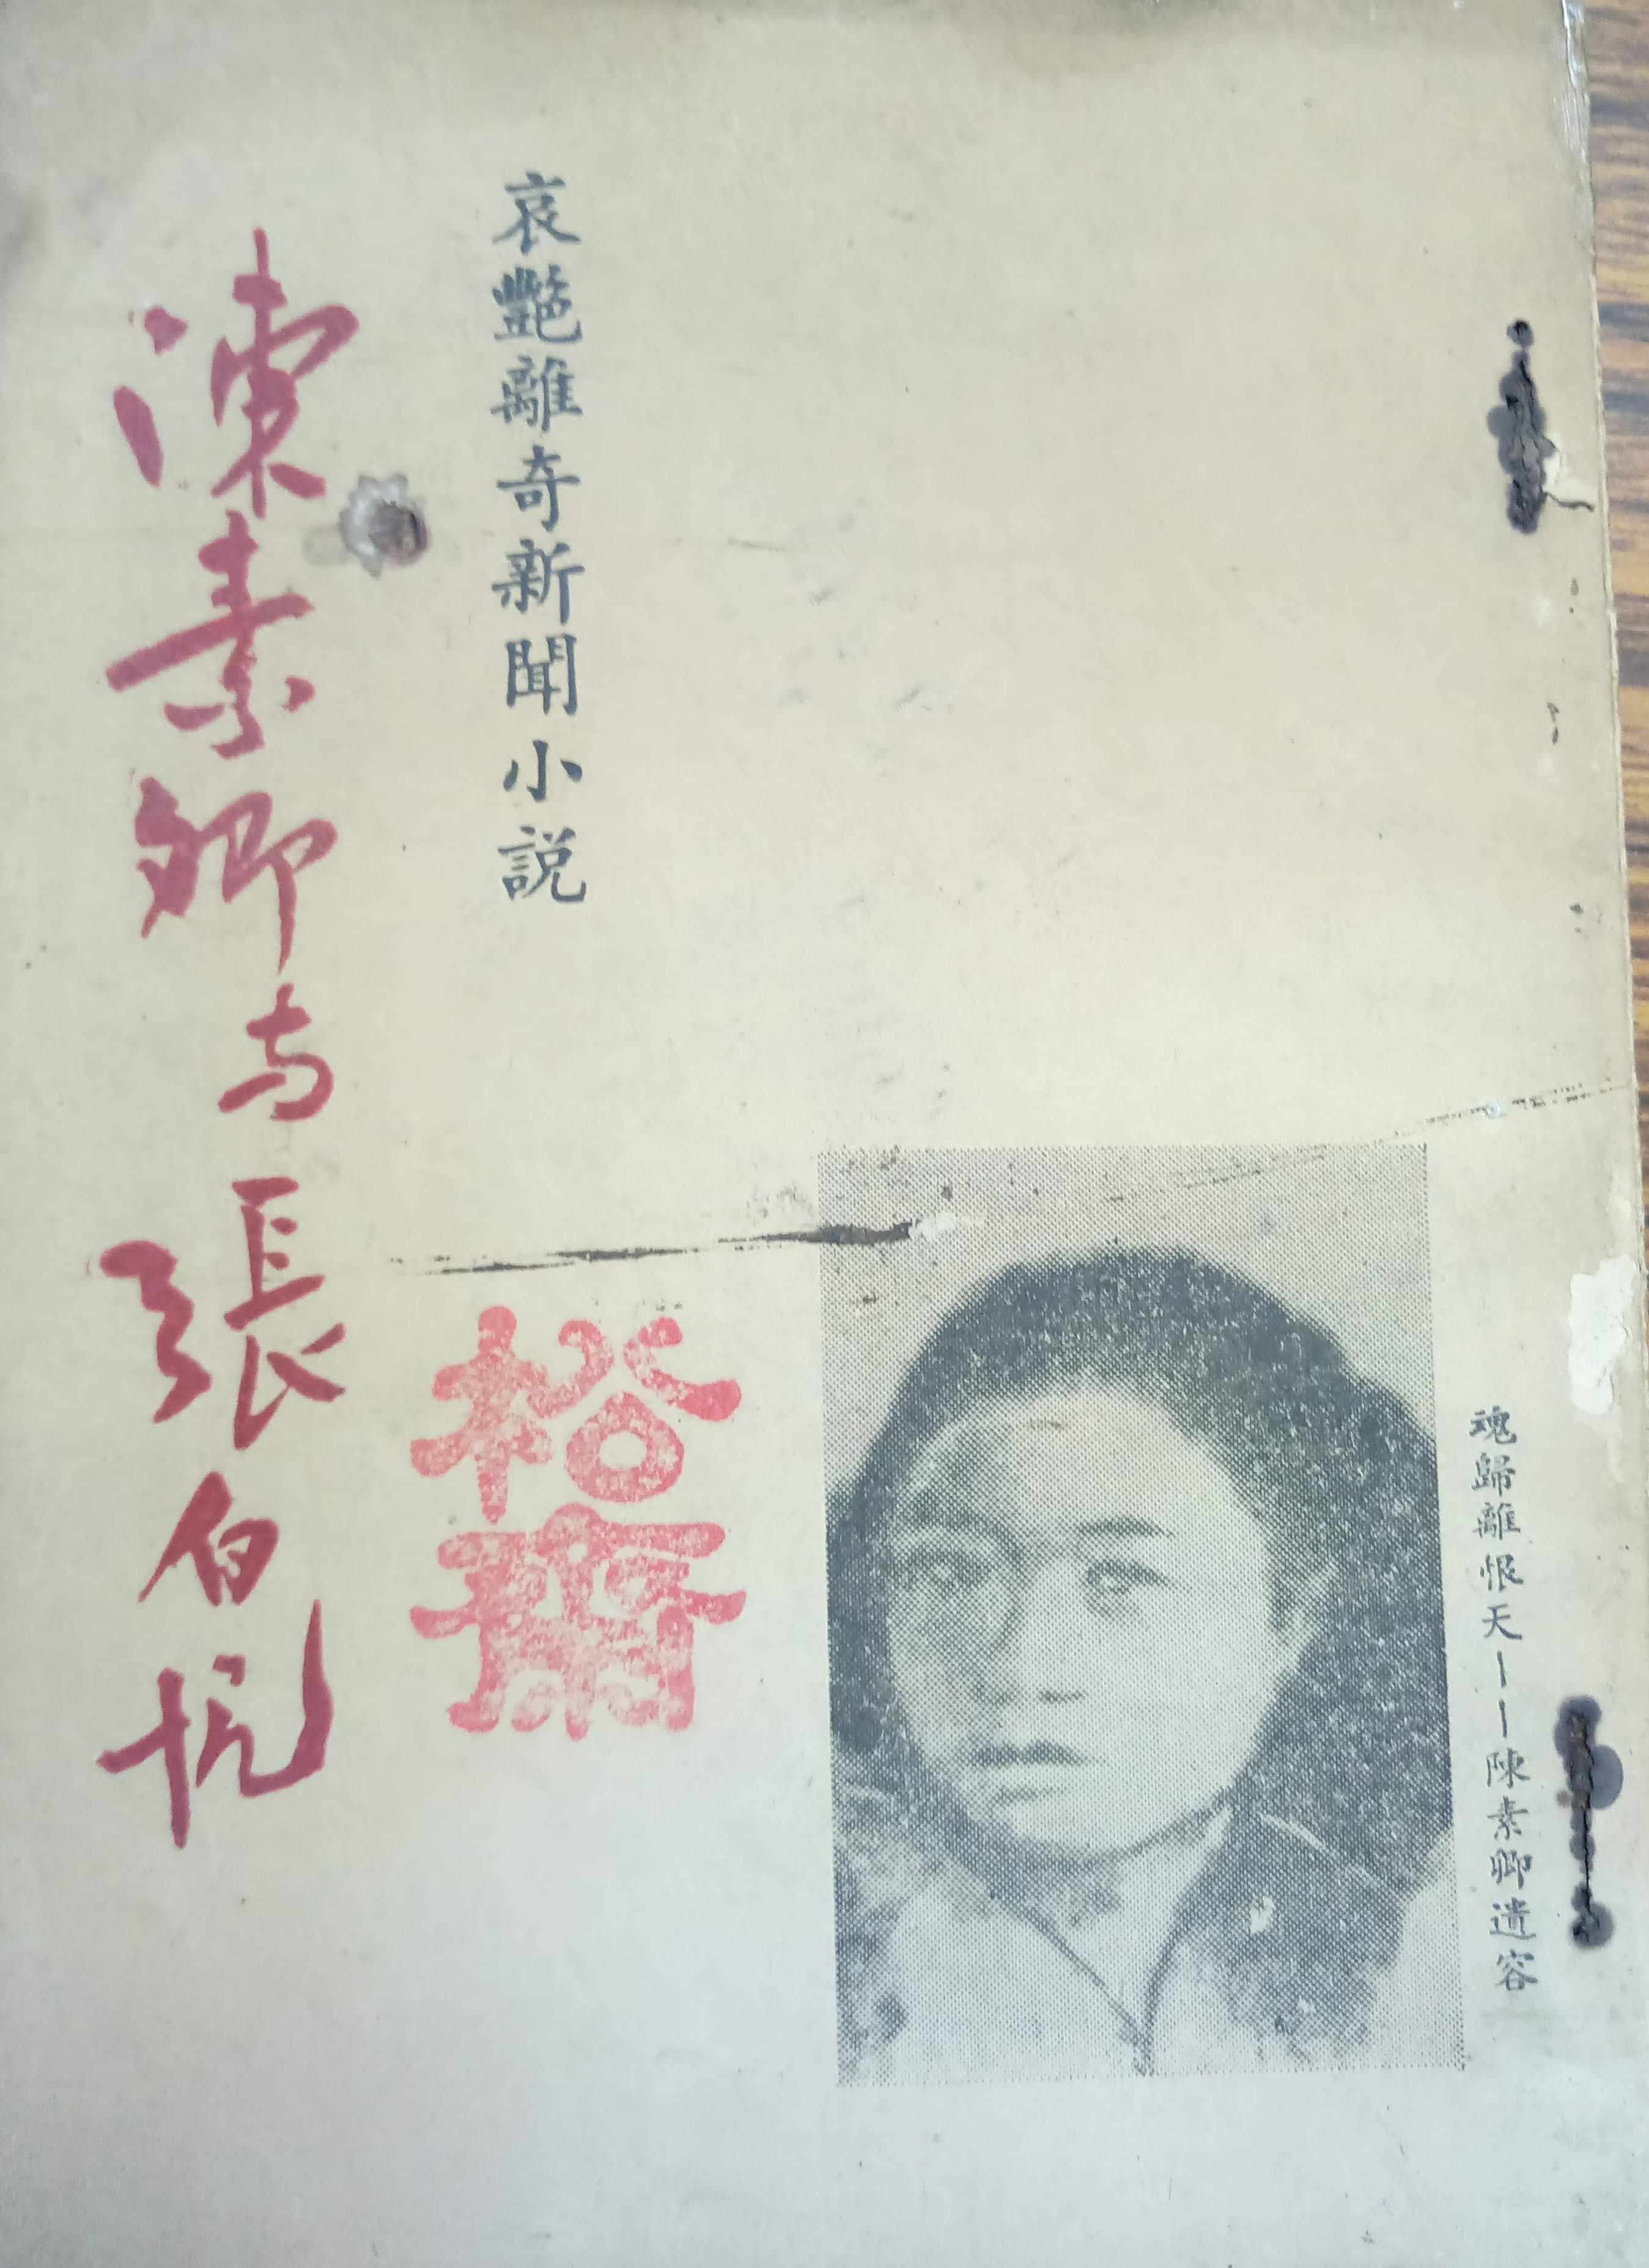 魂歸離恨天——陳素卿遺容
哀艷離奇新聞小説
松齋
陳素卿与張白帆